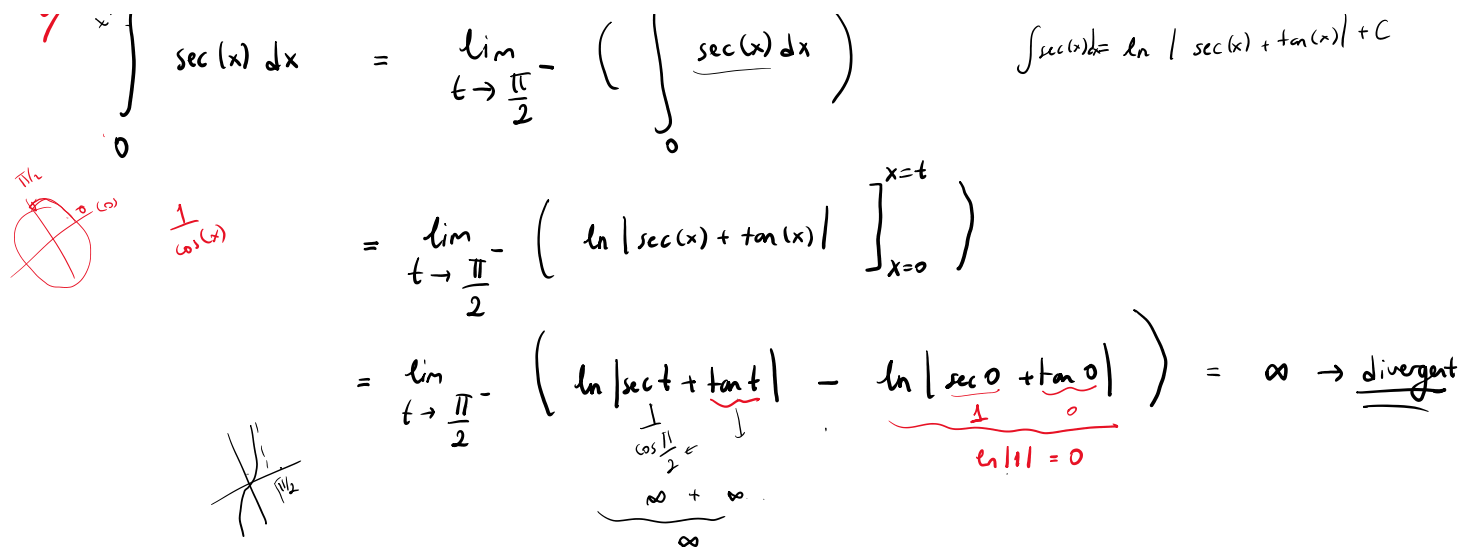 ∫₀ sec(x) dx = lim t→π/2⁻ ( ∫₀ sec(x) dx ) ∫sec(x)dx = ln | sec(x) + tan(x)| + C
π/2 0 1/cos(x) = lim t→π/2⁻ ( ln |sec(x) + tan(x)| ]ₓ₌₀ˣ⁼ᵗ )
= lim t→π/2⁻ ( ln |sec t + tan t| − ln | sec 0 + tan 0| ) = ∞ → divergent
1/cos π/2 1 0
π/2 ln|1| = 0
∞ + ∞
∞